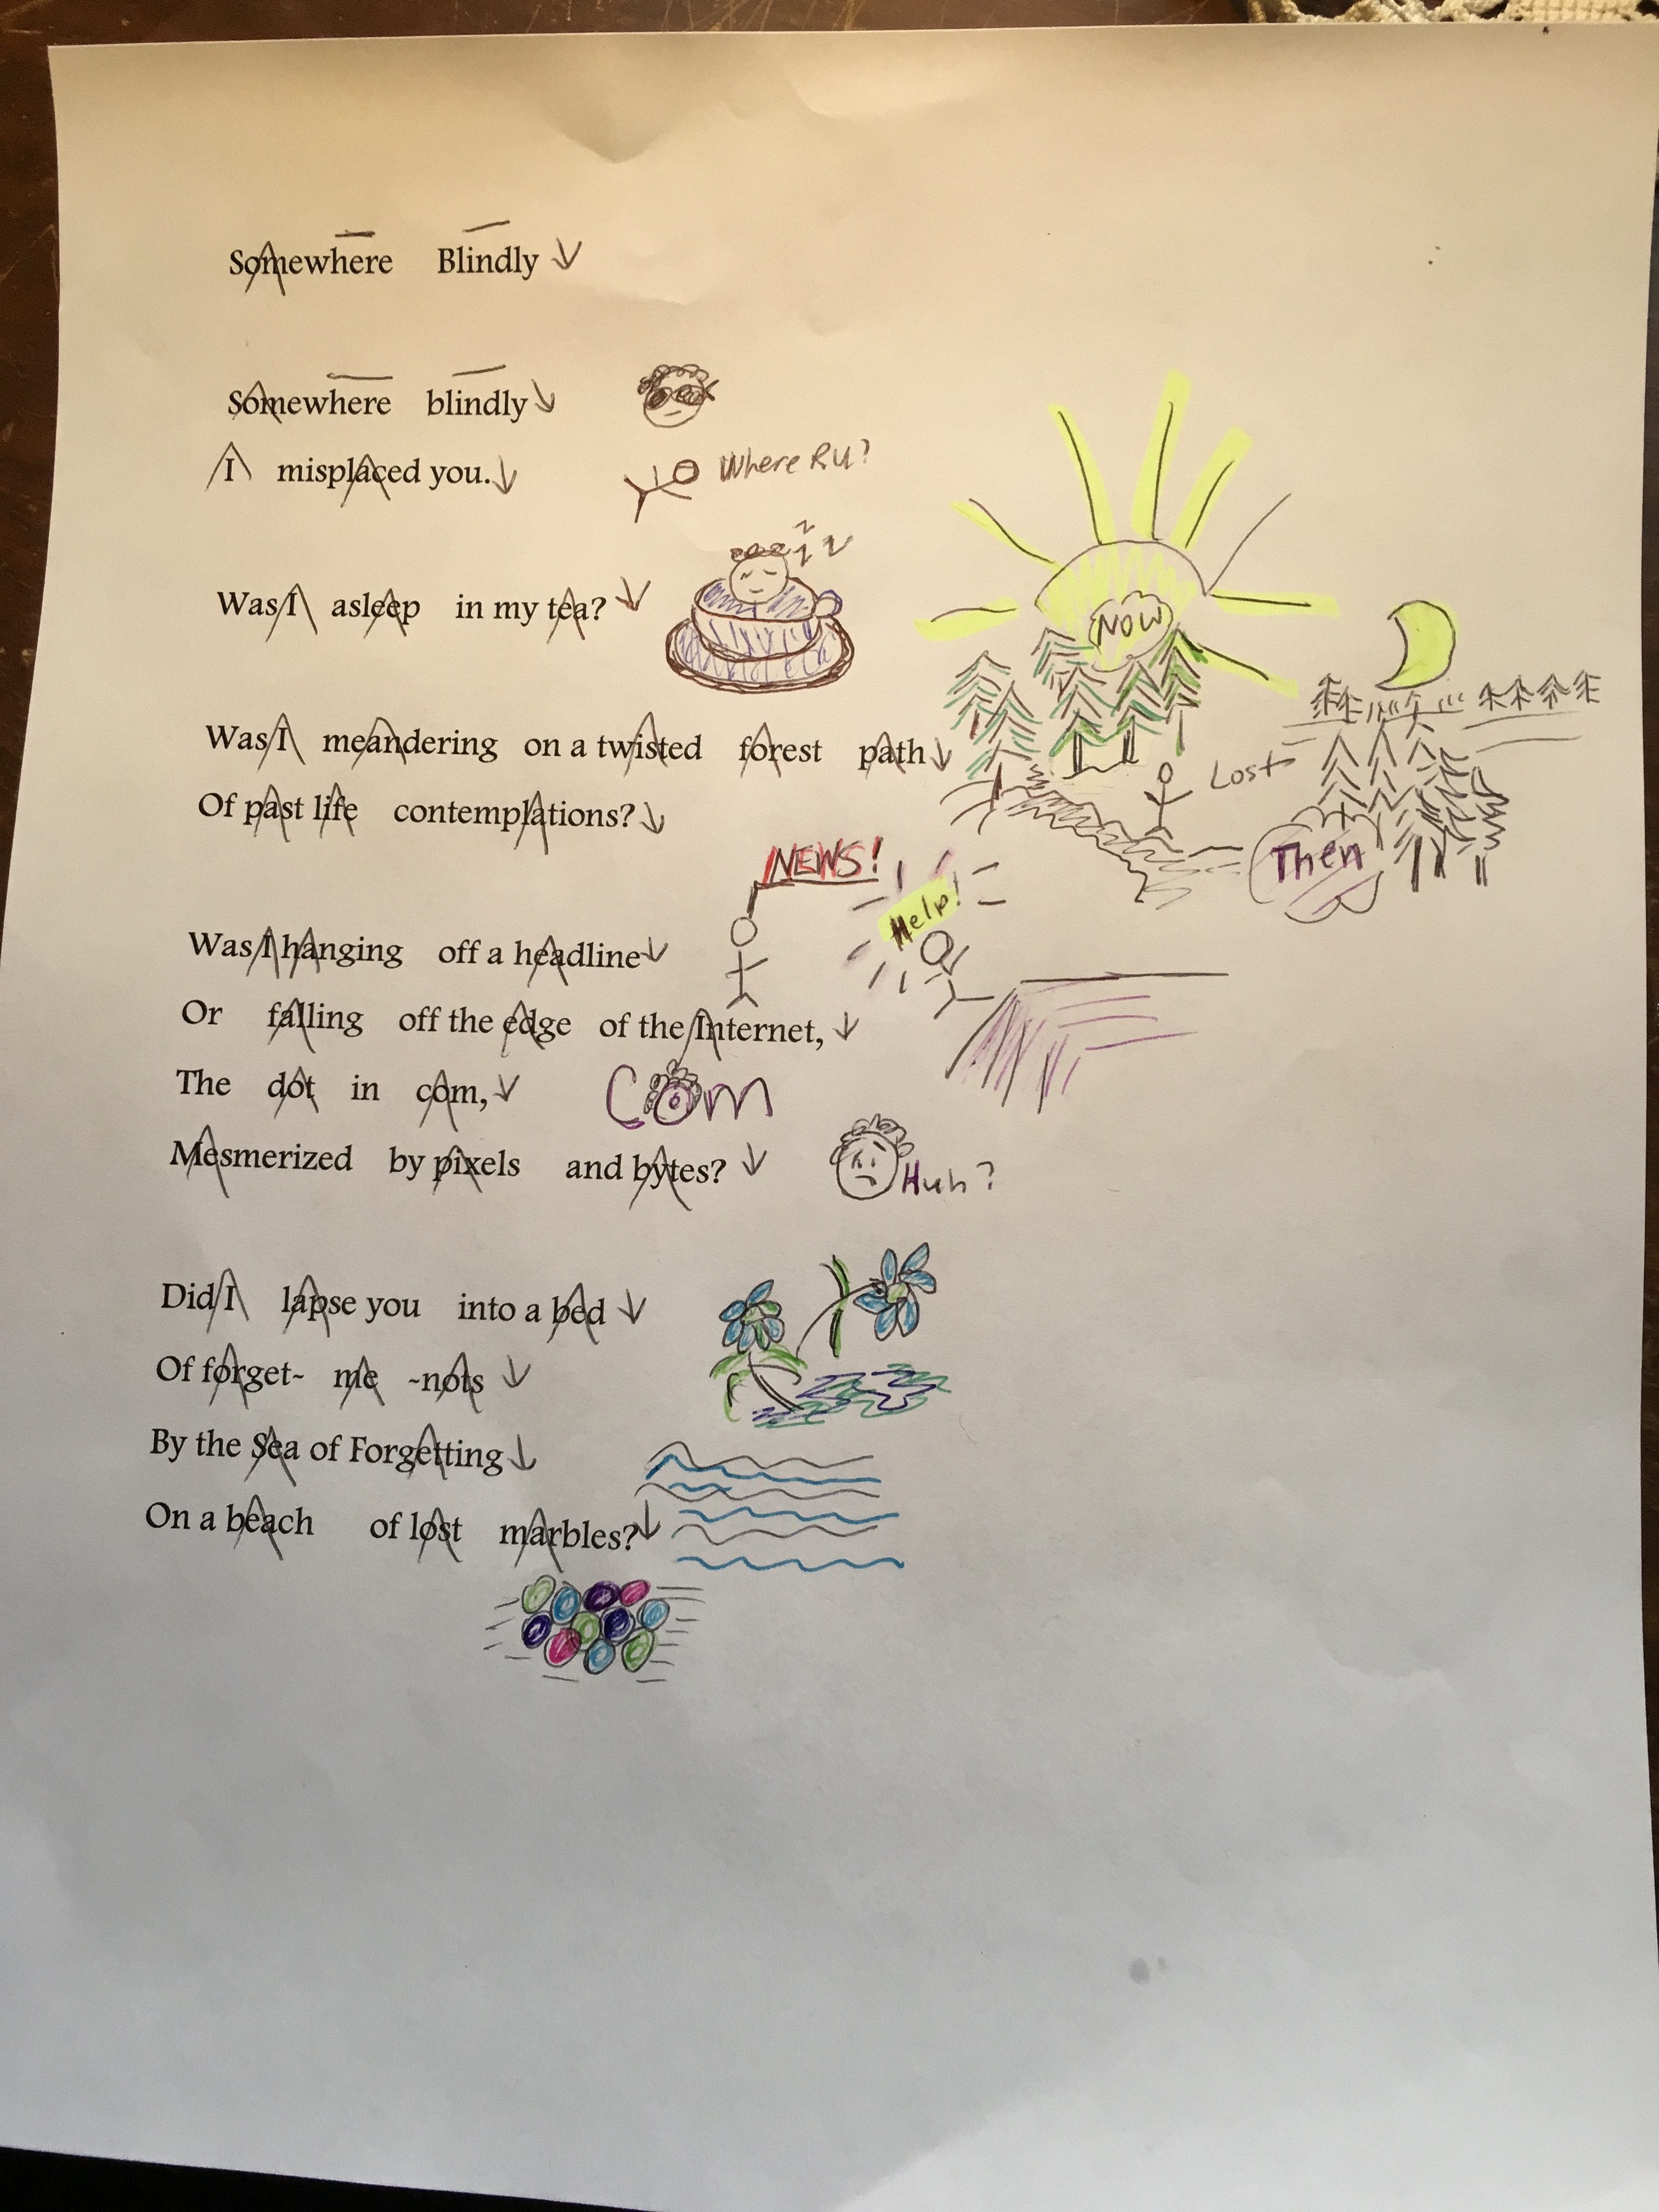 Somewhere Blindly
Somewhere blindly
I misplaced you.
Where R U?
Was I asleep in my tea?
z z z
NOW
Was I meandering on a twisted forest path
Lost
Of past life contemplations?
Then
NEWS!
Help!
Was I hanging off a headline
Or falling off the edge of the Internet,
The dot in com,
Com
Mesmerized by pixels and bytes?
Huh?
Did I lapse you into a bed
Of forget- me -nots
By the Sea of Forgetting
On a beach of lost marbles?